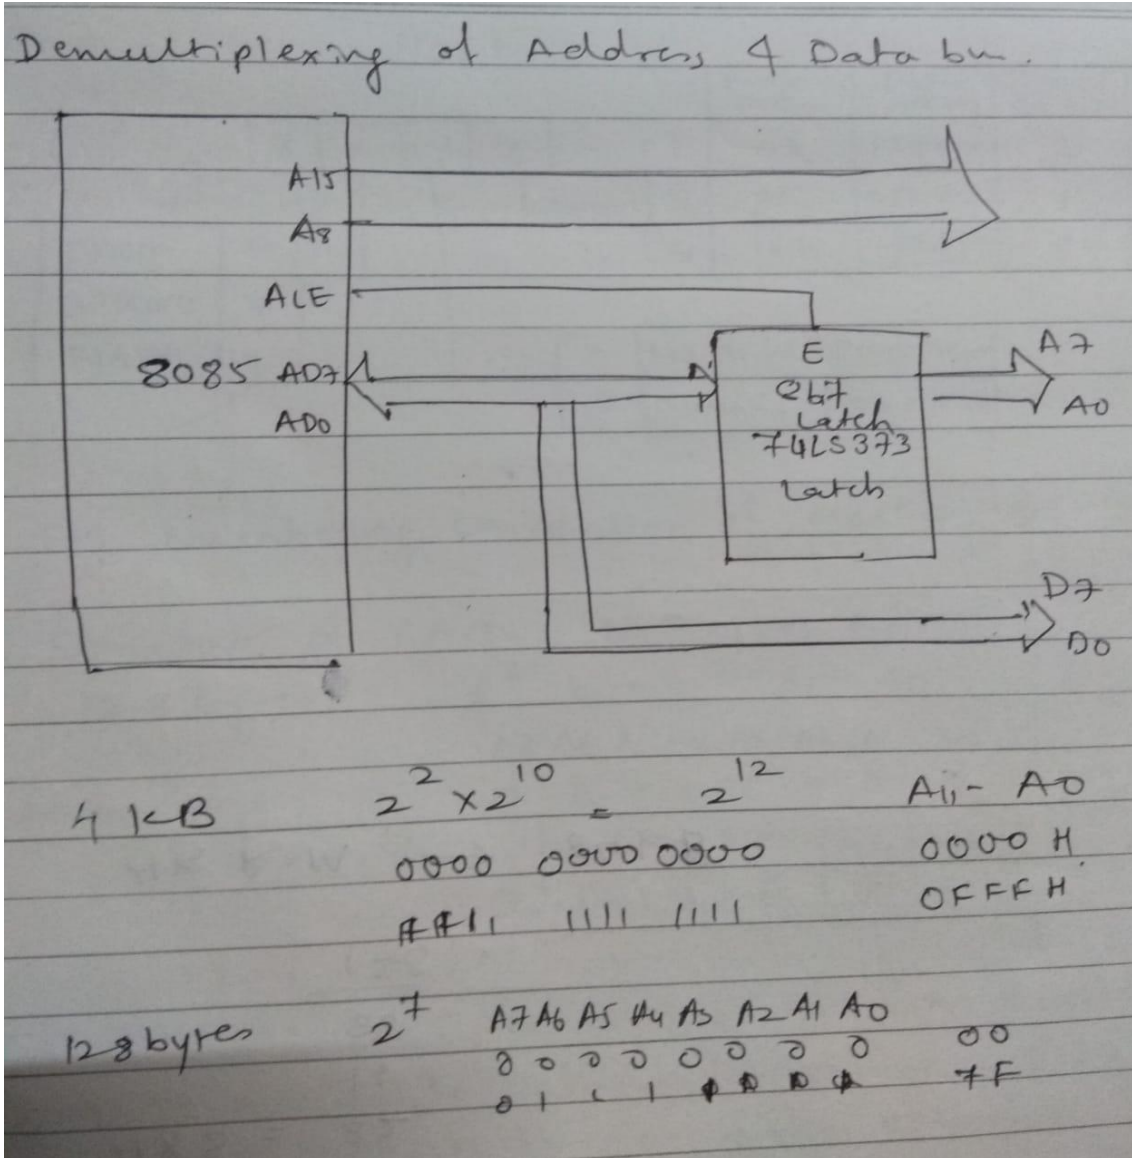 Demultiplexing of Address & Data bu.
A15
A8
ALE
8085 AD7
AD0
E
8bit
Latch
74LS373
Latch
A7
A0
D7
D0
4 KB 2^2 x 2^10 = 2^12 A11 - A0
0000 0000 0000 0000 H
1111 1111 1111 0FFF H
128 bytes 2^7 A7 A6 A5 A4 A3 A2 A1 A0
0 0 0 0 0 0 0 0 00
0 1 1 1 1 1 1 1 7F